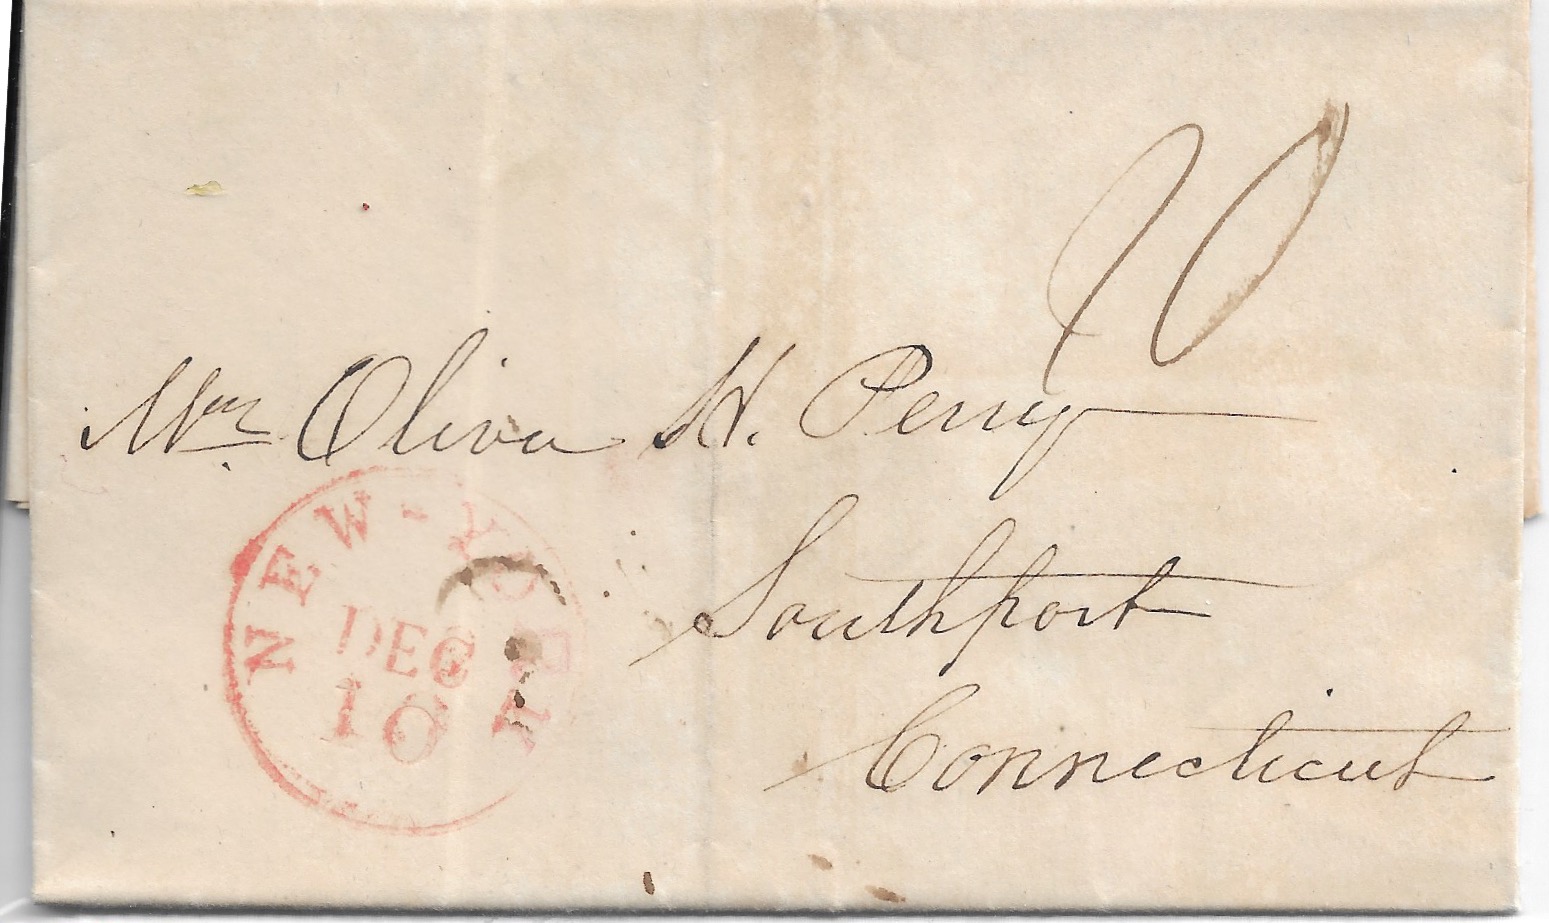 10
Mrs Oliva H. Perry
Southport
Connecticut
NEW-YORK
DEC
18